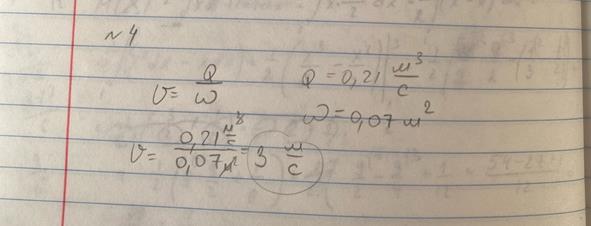 №4
v = Q/ω Q = 0,21 м³/с
ω = 0,07 м²
v = 0,21 м³/с / 0,07 м² = 3 м/с